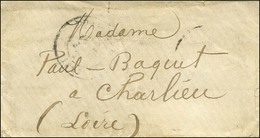 Madame
Paul-Baguet
a Charlieu
(Loire)